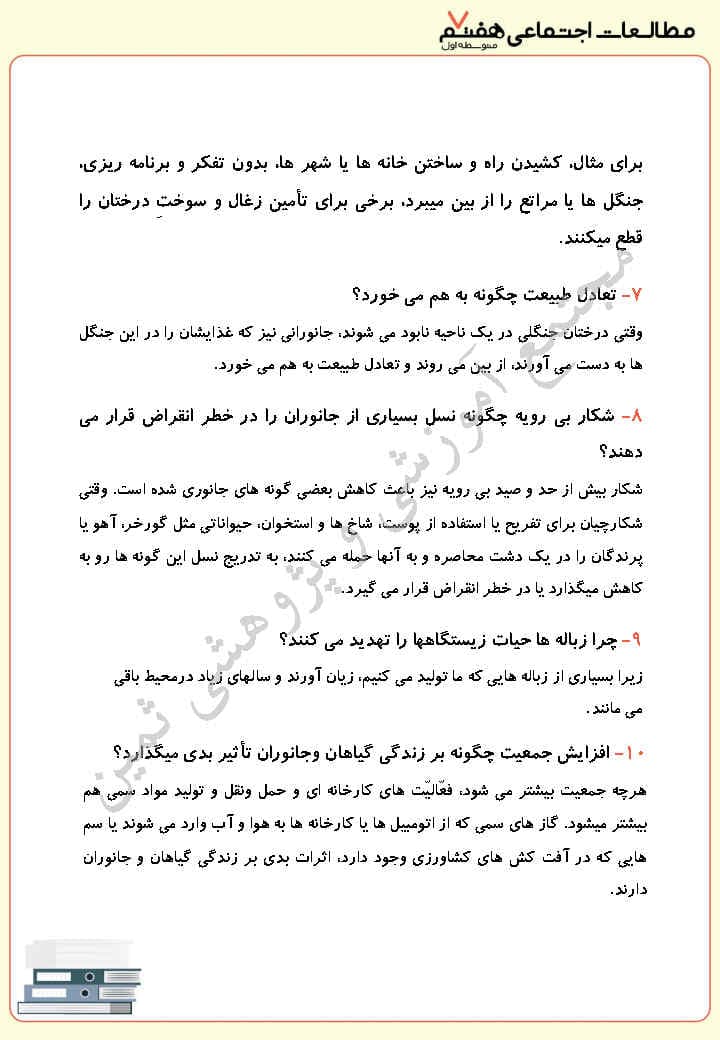 مطالعات اجتماعی هفتم ۷
متوسطه اول
برای مثال، کشیدن راه و ساختن خانه ها یا شهر ها، بدون تفکر و برنامه ریزی،
جنگل ها یا مراتع را از بین میبرد، برخی برای تأمین زغال و سوخت درختان را
قطع میکنند.
۷- تعادل طبیعت چگونه به هم می خورد؟
وقتی درختان جنگلی در یک ناحیه نابود می شوند، جانورانی نیز که غذایشان را در این جنگل
ها به دست می آورند، از بین می روند و تعادل طبیعت به هم می خورد.
۸- شکار بی رویه چگونه نسل بسیاری از جانوران را در خطر انقراض قرار می
دهند؟
شکار بیش از حد و صید بی رویه نیز باعث کاهش بعضی گونه های جانوری شده است. وقتی
شکارچیان برای تفریح یا استفاده از پوست، شاخ ها و استخوان، حیواناتی مثل گورخر، آهو یا
پرندگان را در یک دشت محاصره و به آنها حمله می کنند، به تدریج نسل این گونه ها رو به
کاهش میگذارد یا در خطر انقراض قرار می گیرد.
۹- چرا زباله ها حیات زیستگاهها را تهدید می کنند؟
زیرا بسیاری از زباله هایی که ما تولید می کنیم، زیان آورند و سالهای زیاد درمحیط باقی
می مانند.
۱۰- افزایش جمعیت چگونه بر زندگی گیاهان وجانوران تأثیر بدی میگذارد؟
هرچه جمعیت بیشتر می شود، فعّالیّت های کارخانه ای و حمل ونقل و تولید مواد سمی هم
بیشتر میشود. گاز های سمی که از اتومبیل ها یا کارخانه ها به هوا و آب وارد می شوند یا سم
هایی که در آفت کش های کشاورزی وجود دارد، اثرات بدی بر زندگی گیاهان و جانوران
دارند.
مجتمع آموزشی و پژوهشی ثمین